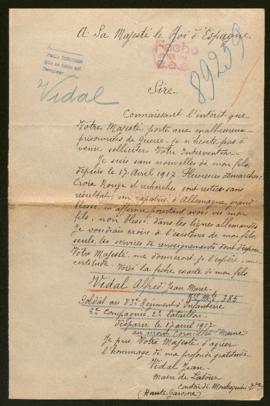 A Sa Majesté le Roi d'Espagne.
Fecho
89259
Vidal
Sire.
Connaissant l'intérêt que
Votre Majesté porte aux malheureux
prisonniers de Guerre, je n'hésite pas à
venir solliciter Votre intervention.
Je suis sans nouvelles de mon fils,
depuis le 17 Avril 1917. Plusieurs démarches,
Croix Rouge et recherches sont restées sans
résultat; un rapatrié d'Allemagne, grand
blessé, m'affirme pourtant avoir vu mon
fils, non blessé, dans les lignes allemandes.
Je voudrais croire à l'existence de mon fils,
seuls, les services de renseignements dont dispose
Votre Majesté, me donneront, je l'espère, une
certitude.
Voici la fiche exacte de mon fils
Vidal Alfred Jean Marie
Soldat au 83e Régiment d'Infanterie
Compagnie, Bataillon
Disparu le 17 avril 1917
au Cornillet Marne
Je prie Votre Majesté d'agréer
l'hommage de ma profonde gratitude.
Vidal Jean
maire de
canton de
(Haute Garonne)